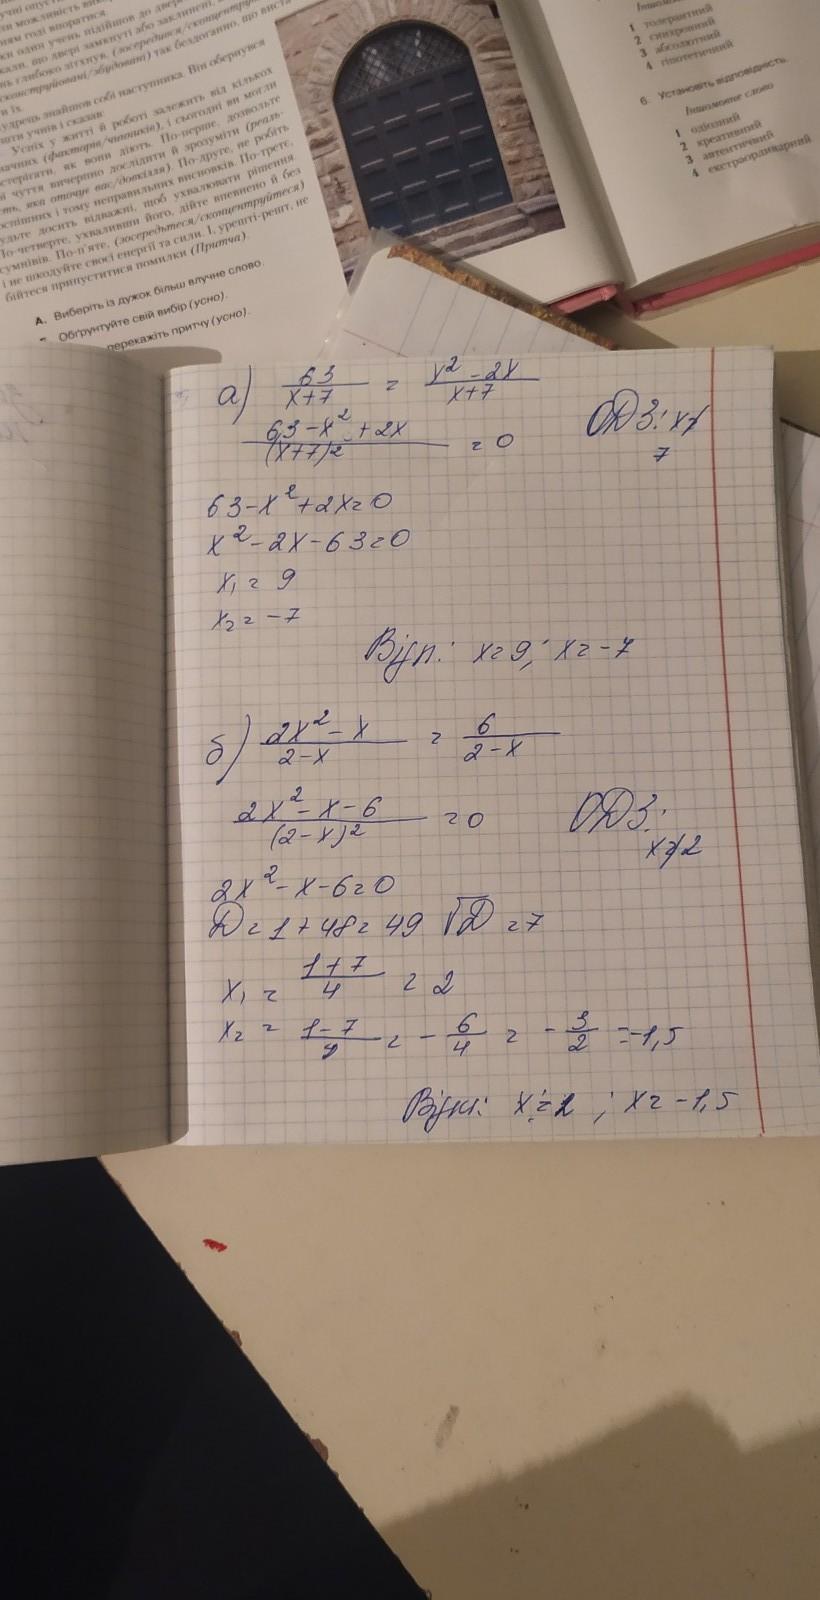 ки один учень підійшов до двере
кали, що двері замкнуті або заклинені,
нь глибоко зітхнув, (зосередився/сконцентрувався
сконструйовані/збудовані) так бездоганно, що виста
и їх.
удрець знайшов собі наступника. Він обернувся
шти учнів і сказав:
Успіх у житті й роботі залежить від кількох
начних (факторів/чинників), і сьогодні ви могли
остерігати, як вони діють. По-перше, дозвольте
й чуття вичерпно дослідити й зрозуміти (реаль-
сть, яка оточує вас/довкілля). По-друге, не робіть
оспішних і тому неправильних висновків. По-третє,
удьте досить відважні, щоб ухвалювати рішення.
По-четверте, ухваливши його, дійте впевнено й без
сумнівів. По-п'яте, (зосередьтеся/сконцентруйтеся)
і не шкодуйте своєї енергії та сили. І, урешті-решт, не
бійтеся припуститися помилки (Притча).
А. Виберіть із дужок більш влучне слово.
Обґрунтуйте свій вибір (усно).
перекажіть притчу (усно).
1 толерантний
2 синхронний
3 абсолютний
4 гіпотетичний
6. Установіть відповідність.
Іншомовне слово
1 одіозний
2 креативний
3 автентичний
4 екстраординарний
а) 63/(x+7) = (x² - 2x)/(x+7)
(63 - x² + 2x)/(x+7)² = 0 ОДЗ: x≠
7
63 - x² + 2x = 0
x² - 2x - 63 = 0
x₁ = 9
x₂ = -7
Відп: x = 9; x = -7
б) (2x² - x)/(2-x) = 6/(2-x)
(2x² - x - 6)/(2-x)² = 0 ОДЗ:
x≠2
2x² - x - 6 = 0
D = 1 + 48 = 49 √D = 7
x₁ = (1+7)/4 = 2
x₂ = (1-7)/4 = -6/4 = -3/2 = -1,5
Відп: x = 2 ; x = -1,5